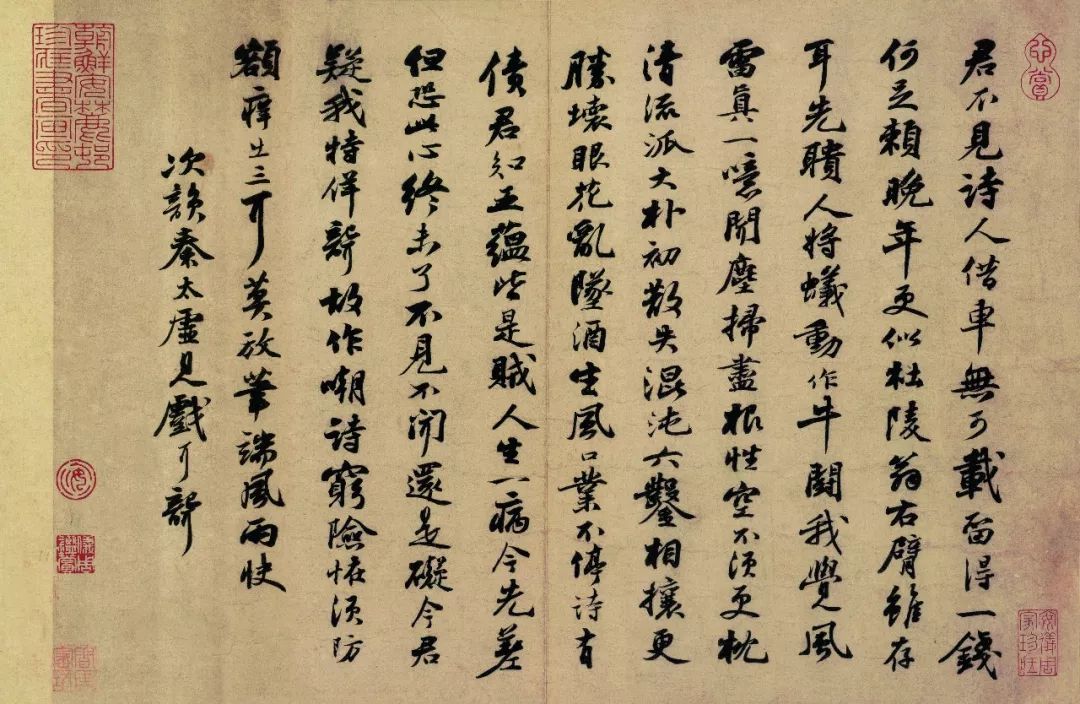 心賞
君不見詩人借車無可載留得一錢
何足賴晚年更似杜陵翁右臂雖存
耳先聵人將蟻動作牛鬪我覺風
雷真一噫聞塵掃盡根性空不須更枕
清流派大朴初散失混沌六鑿相攘更
勝壞眼花亂墜酒生風口業不停詩有
債君知五蘊皆是賊人生一病今先差
但恐此心終未了不見不聞還是礙今君
疑我特佯聾故作嘲詩窮險怪須防
額癢出三耳莫放筆端風雨快
次韻秦太虛見戲耳聾
朝鮮安麓邨珍藏書畫印
安儀周家珍藏